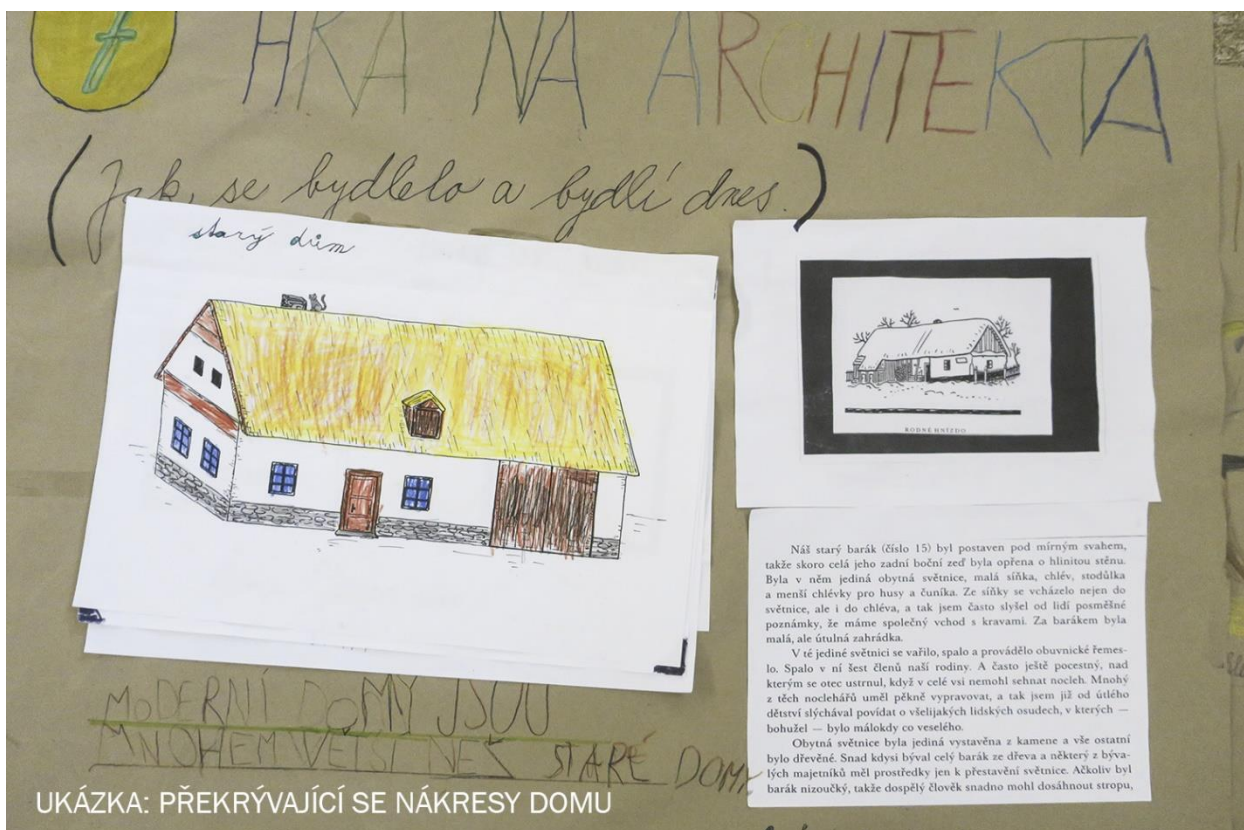 7 HRA NA ARCHITEKTA
(Jak se bydlelo a bydlí dnes.)
starý dům
RODNÉ HNÍZDO
Náš starý barák (číslo 15) byl postaven pod mírným svahem,
takže skoro celá jeho zadní boční zeď byla opřena o hlinitou stěnu.
Byla v něm jediná obytná světnice, malá síňka, chlév, stodůlka
a menší chlévky pro husy a čuníka. Ze síňky se vcházelo nejen do
světnice, ale i do chléva, a tak jsem často slyšel od lidí posměšné
poznámky, že máme společný vchod s kravami. Za barákem byla
malá, ale útulná zahrádka.
V té jediné světnici se vařilo, spalo a provádělo obuvnické řemes-
lo. Spalo v ní šest členů naší rodiny. A často ještě pocestný, nad
kterým se otec ustrnul, když v celé vsi nemohl sehnat nocleh. Mnohý
z těch noclehářů uměl pěkně vypravovat, a tak jsem již od útlého
dětství slýchával povídat o všelijakých lidských osudech, v kterých —
bohužel — bylo málokdy co veselého.
Obytná světnice byla jediná vystavěna z kamene a vše ostatní
bylo dřevěné. Snad kdysi býval celý barák ze dřeva a některý z býva-
lých majetníků měl prostředky jen k přestavění světnice. Ačkoliv byl
barák nizoučký, takže dospělý člověk snadno mohl dosáhnout stropu,
MODERNÍ DOMY JSOU
MNOHEM VĚTŠÍ NEŽ STARÉ DOMY
UKÁZKA: PŘEKRÝVAJÍCÍ SE NÁKRESY DOMU